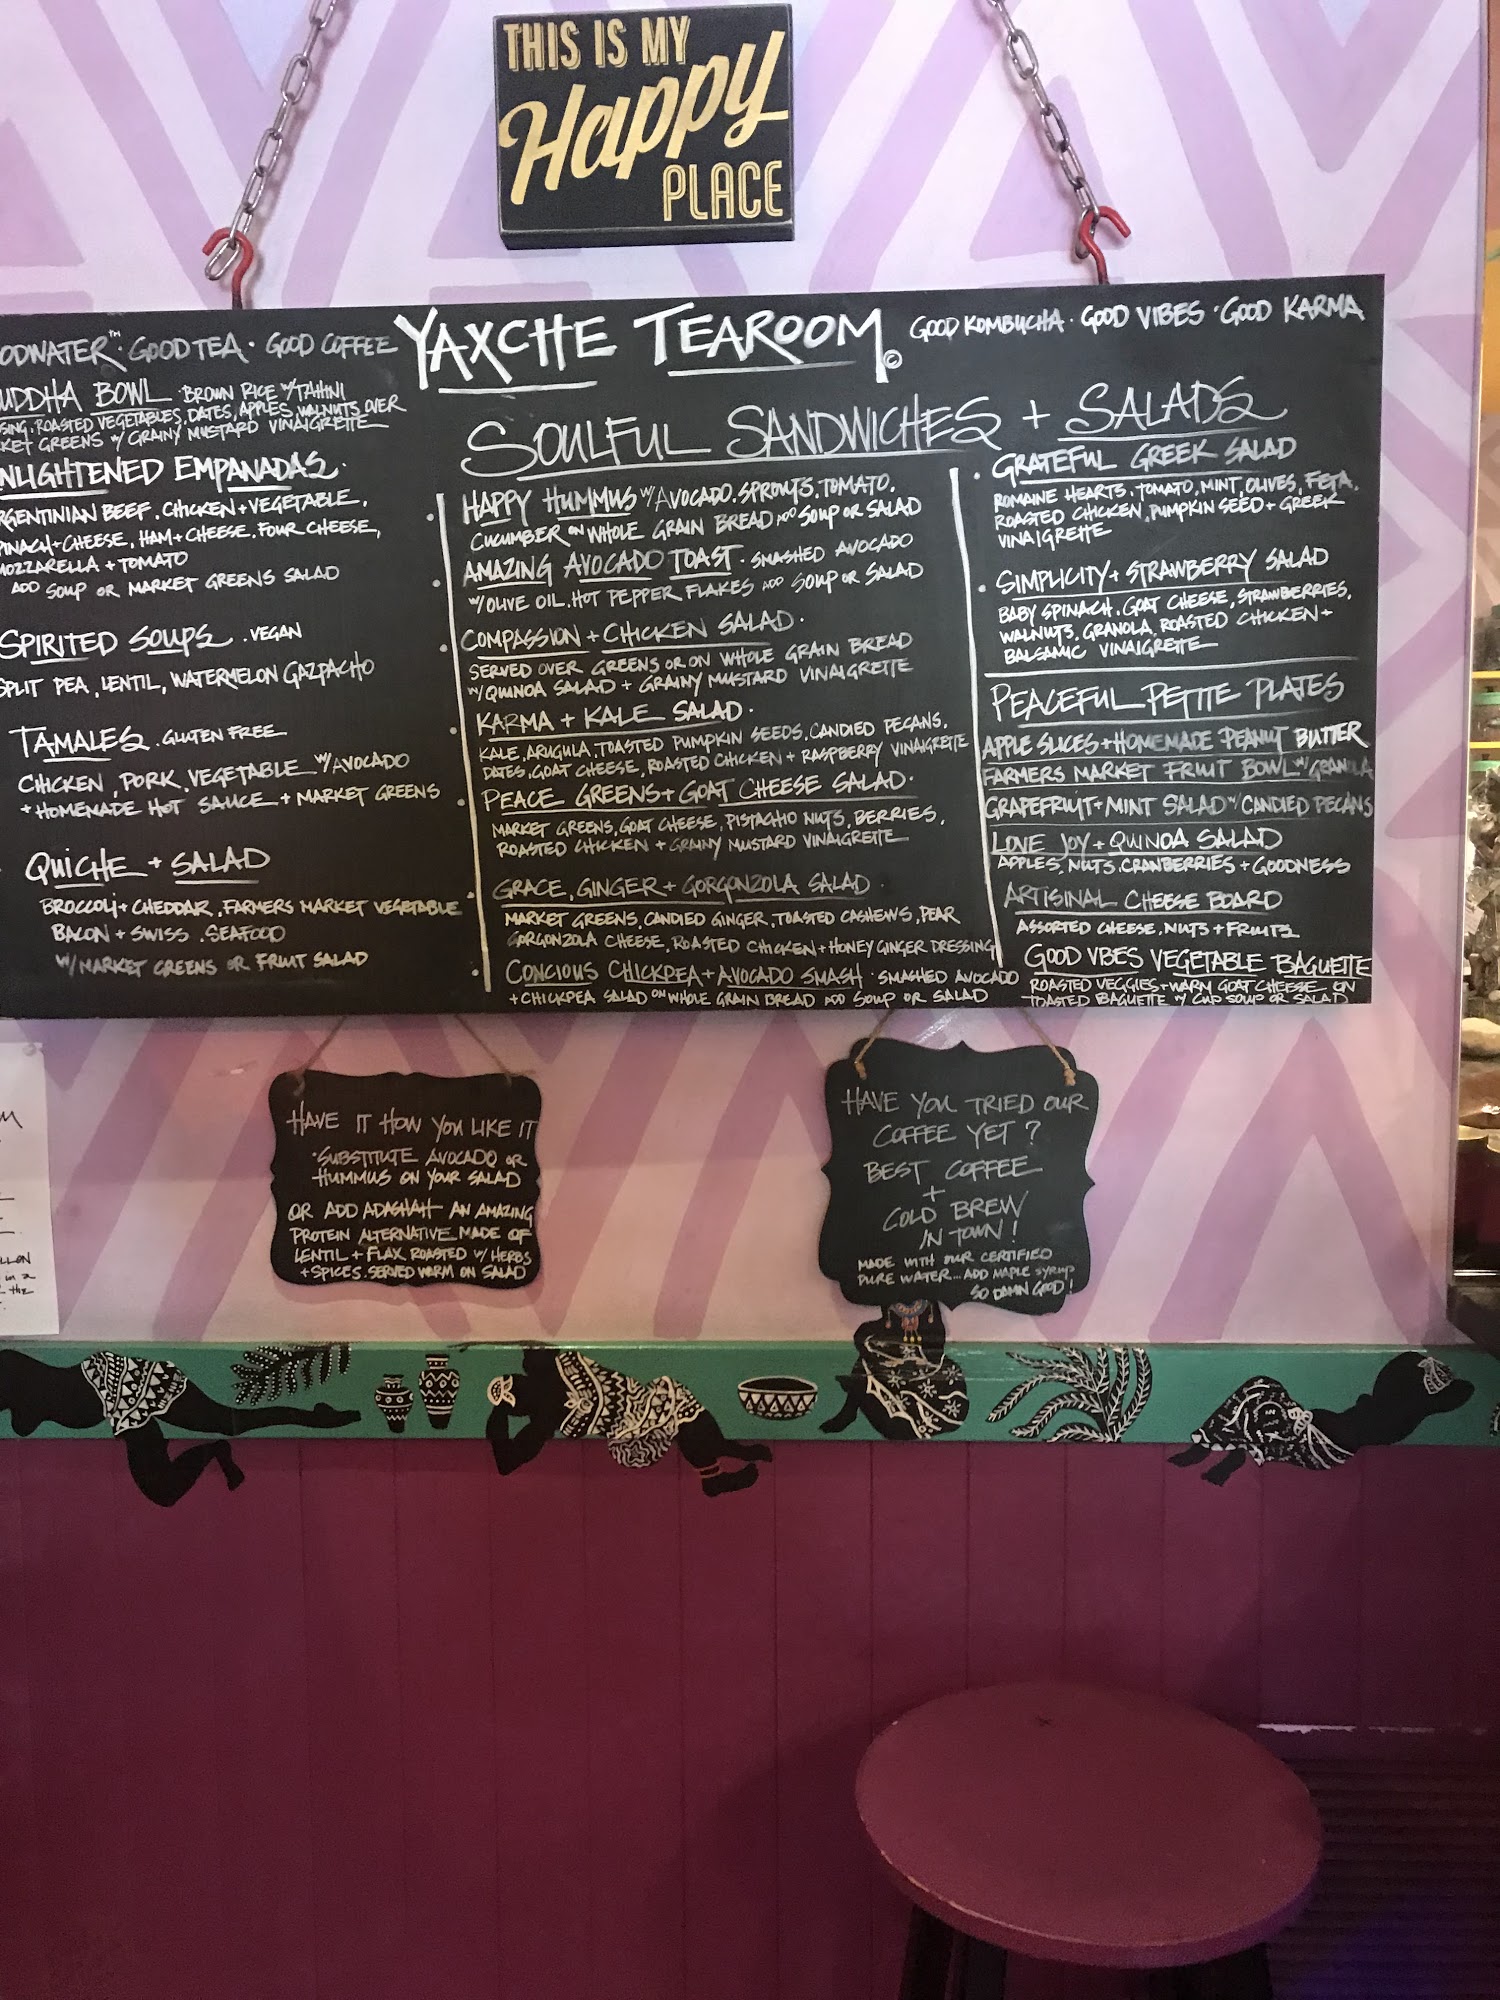 THIS IS MY
Happy
PLACE
GOOD TEA · GOOD COFFEE
YAXCHE TEAROOM ©
GOOD KOMBUCHA · GOOD VIBES · GOOD KARMA
BOWL · BROWN RICE W/ TAHINI
ROASTED VEGETABLES, DATES, APPLES, WALNUTS OVER
GREENS W/ GRAINY MUSTARD VINAIGRETTE
EMPANADAS ·
BEEF, CHICKEN + VEGETABLE,
CHEESE, HAM + CHEESE, FOUR CHEESE,
+ TOMATO
ADD SOUP OR MARKET GREENS SALAD
SPIRITED SOUPS · VEGAN
SPLIT PEA, LENTIL, WATERMELON GAZPACHO
TAMALES · GLUTEN FREE
CHICKEN, PORK, VEGETABLE W/ AVOCADO
+ HOMEMADE HOT SAUCE + MARKET GREENS
QUICHE + SALAD
BROCCOLI + CHEDDAR, FARMERS MARKET VEGETABLE
BACON + SWISS · SEAFOOD
W/ MARKET GREENS OR FRUIT SALAD
SOULFUL SANDWICHES + SALADS
· HAPPY HUMMUS W/ AVOCADO, SPROUTS, TOMATO,
CUCUMBER ON WHOLE GRAIN BREAD ADD SOUP OR SALAD
· AMAZING AVOCADO TOAST · SMASHED AVOCADO
W/ OLIVE OIL, HOT PEPPER FLAKES ADD SOUP OR SALAD
· COMPASSION + CHICKEN SALAD ·
SERVED OVER GREENS OR ON WHOLE GRAIN BREAD
W/ QUINOA SALAD + GRAINY MUSTARD VINAIGRETTE
· KARMA + KALE SALAD ·
KALE, ARUGULA, TOASTED PUMPKIN SEEDS, CANDIED PECANS,
DATES, GOAT CHEESE, ROASTED CHICKEN + RASPBERRY VINAIGRETTE
· PEACE GREENS + GOAT CHEESE SALAD ·
MARKET GREENS, GOAT CHEESE, PISTACHIO NUTS, BERRIES,
ROASTED CHICKEN + GRAINY MUSTARD VINAIGRETTE
· GRACE, GINGER + GORGONZOLA SALAD ·
MARKET GREENS, CANDIED GINGER, TOASTED CASHEWS, PEAR
GORGONZOLA CHEESE, ROASTED CHICKEN + HONEY GINGER DRESSING
· CONCIOUS CHICKPEA + AVOCADO SMASH · SMASHED AVOCADO
+ CHICKPEA SALAD ON WHOLE GRAIN BREAD ADD SOUP OR SALAD
· GRATEFUL GREEK SALAD
ROMAINE HEARTS, TOMATO, MINT, OLIVES, FETA,
ROASTED CHICKEN, PUMPKIN SEED + GREEK
VINAIGRETTE
· SIMPLICITY + STRAWBERRY SALAD
BABY SPINACH, GOAT CHEESE, STRAWBERRIES,
WALNUTS, GRANOLA, ROASTED CHICKEN +
BALSAMIC VINAIGRETTE
PEACEFUL PETITE PLATES
APPLE SLICES + HOMEMADE PEANUT BUTTER
FARMERS MARKET FRUIT BOWL W/ GRANOLA
GRAPEFRUIT + MINT SALAD W/ CANDIED PECANS
LOVE JOY + QUINOA SALAD
APPLES, NUTS, CRANBERRIES + GOODNESS
ARTISINAL CHEESE BOARD
ASSORTED CHEESE, NUTS + FRUITS
GOOD VBES VEGETABLE BAGUETTE
ROASTED VEGGIES + WARM GOAT CHEESE ON
TOASTED BAGUETTE W/ CUP SOUP OR SALAD
HAVE IT HOW YOU LIKE IT
· SUBSTITUTE AVOCADO OR
HUMMUS ON YOUR SALAD
OR ADD ADASHAH AN AMAZING
PROTEIN ALTERNATIVE MADE OF
LENTIL + FLAX ROASTED W/ HERBS
+ SPICES. SERVED WARM ON SALAD
HAVE YOU TRIED OUR
COFFEE YET ?
BEST COFFEE
+
COLD BREW
IN TOWN !
MADE WITH OUR CERTIFIED
PURE WATER... ADD MAPLE SYRUP
SO DAMN GOOD !
in a
the